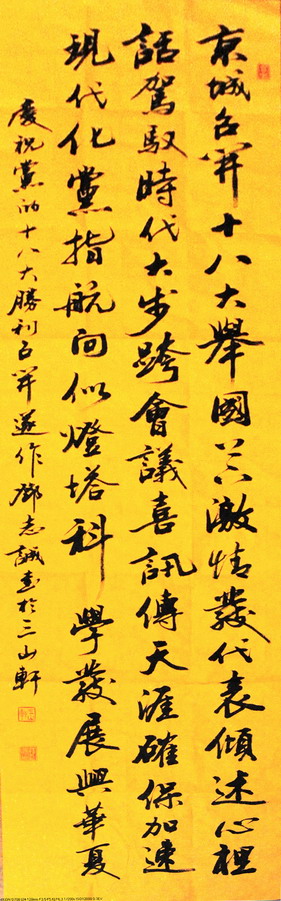 京城召開十八大舉國上下激情發代表傾述心裡
話駕馭時代大步跨會議喜訊傳天涯確保加速
現代化黨指航向似燈塔科學發展興華夏
慶祝黨的十八大勝利召開遂作鄧志誠書於三山軒